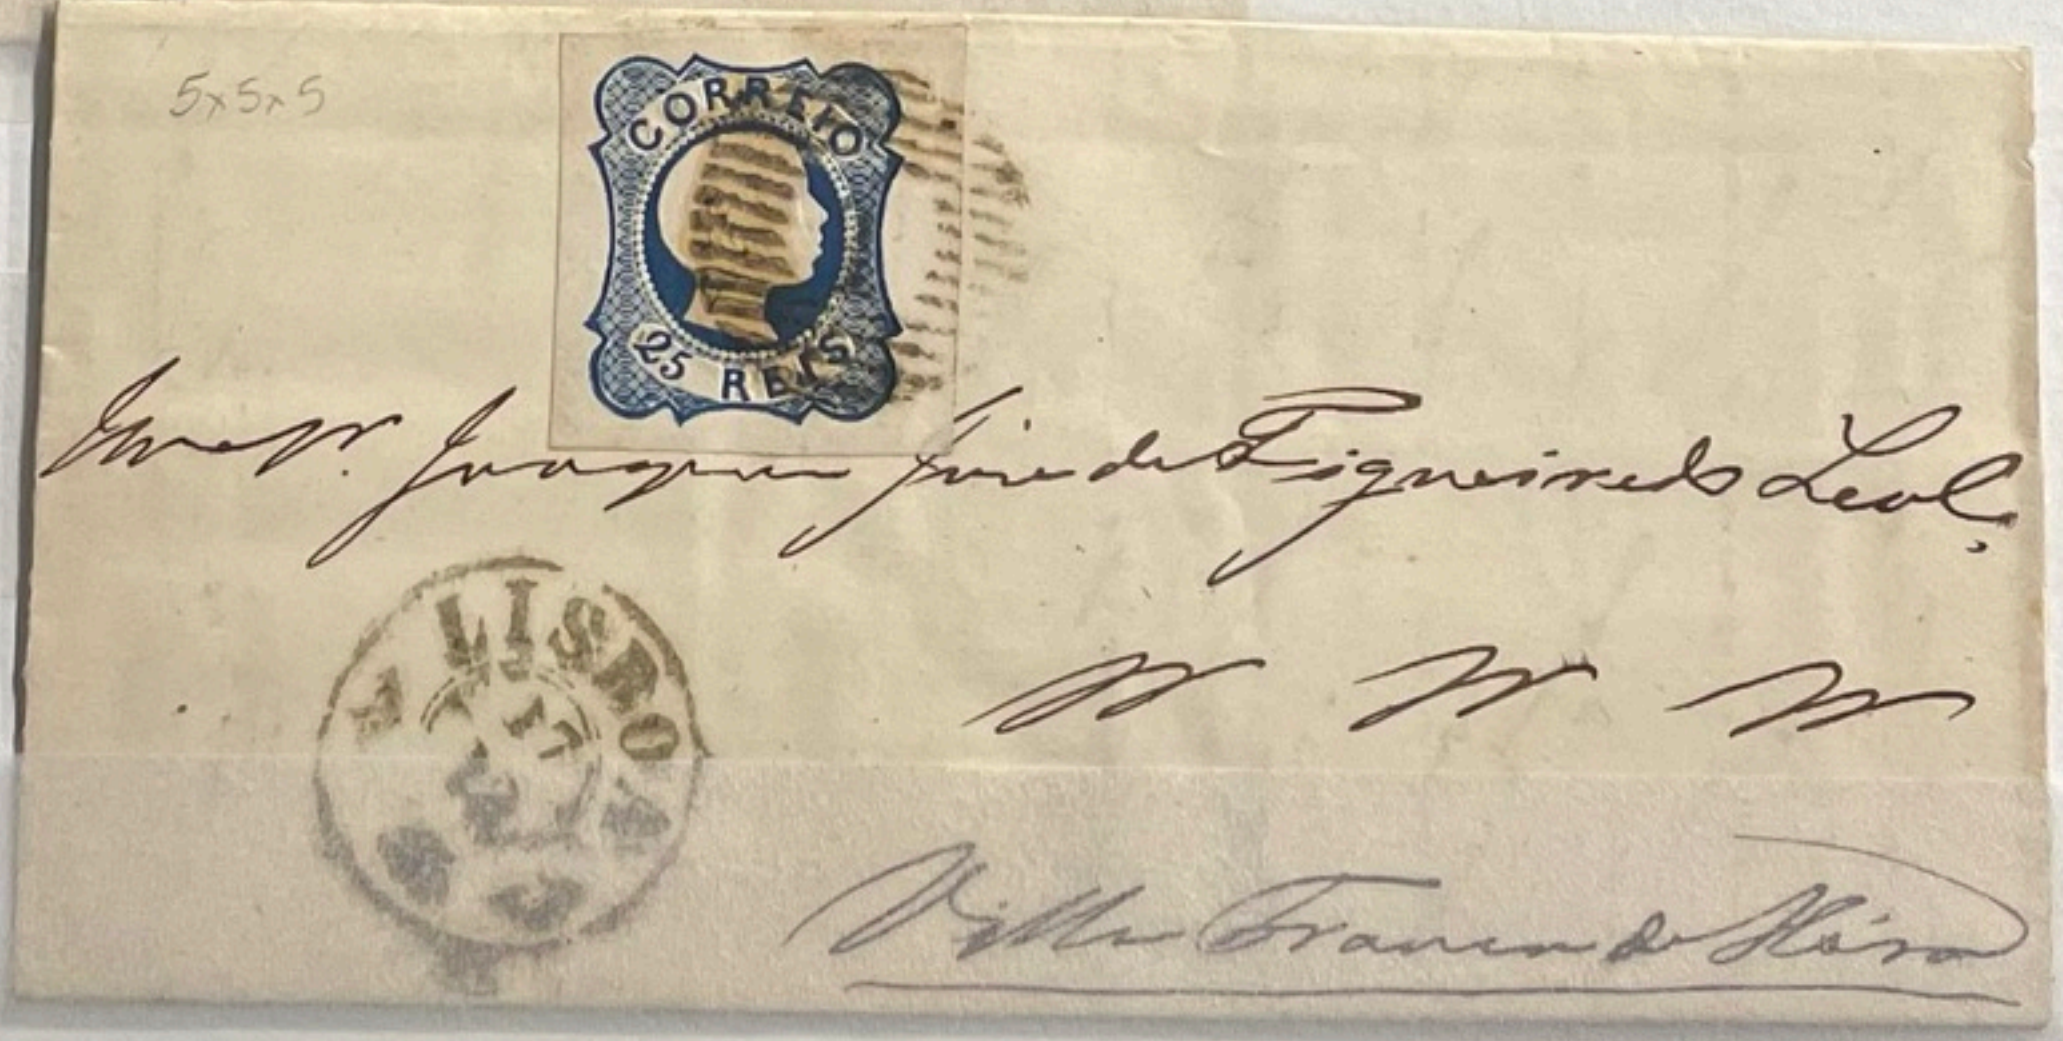 5x5x5
CORREIO
25 REIS
Joaquim José de Figueiredo Leal
LISBOA
17
Villa Franca de Xira